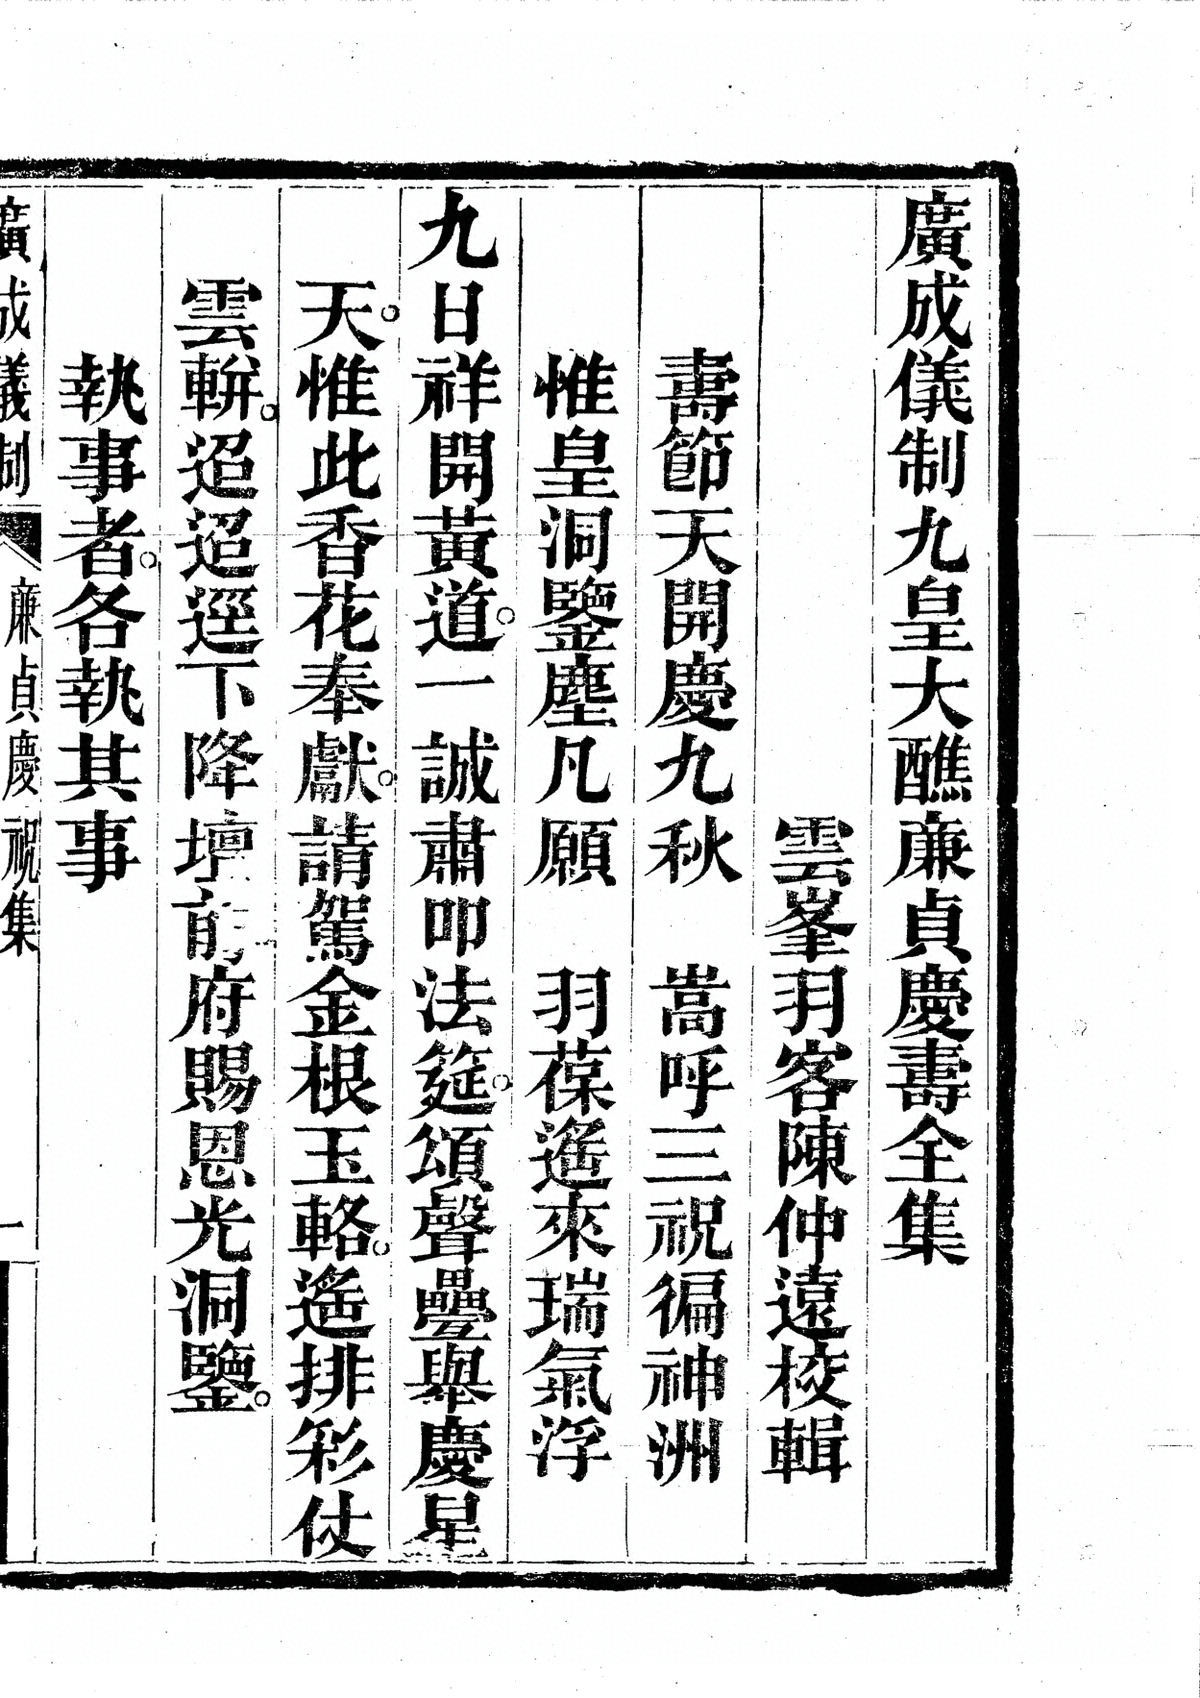 廣成儀制九皇大醮廉貞慶壽全集
雲峯羽客陳仲遠校輯
壽節天開慶九秋　嵩呼三祝徧神洲
惟皇洞鑒塵凡願　羽葆遙來瑞氣浮
九日祥開黃道。一誠肅叩法筵。頌聲疊舉慶星
天。惟此香花奉獻。請駕金根玉輅。遙排彩仗
雲軿。迢迢逕下降壇前府賜恩光洞鑒。
執事者。各執其事
廣成儀制　廉貞慶祝集　一